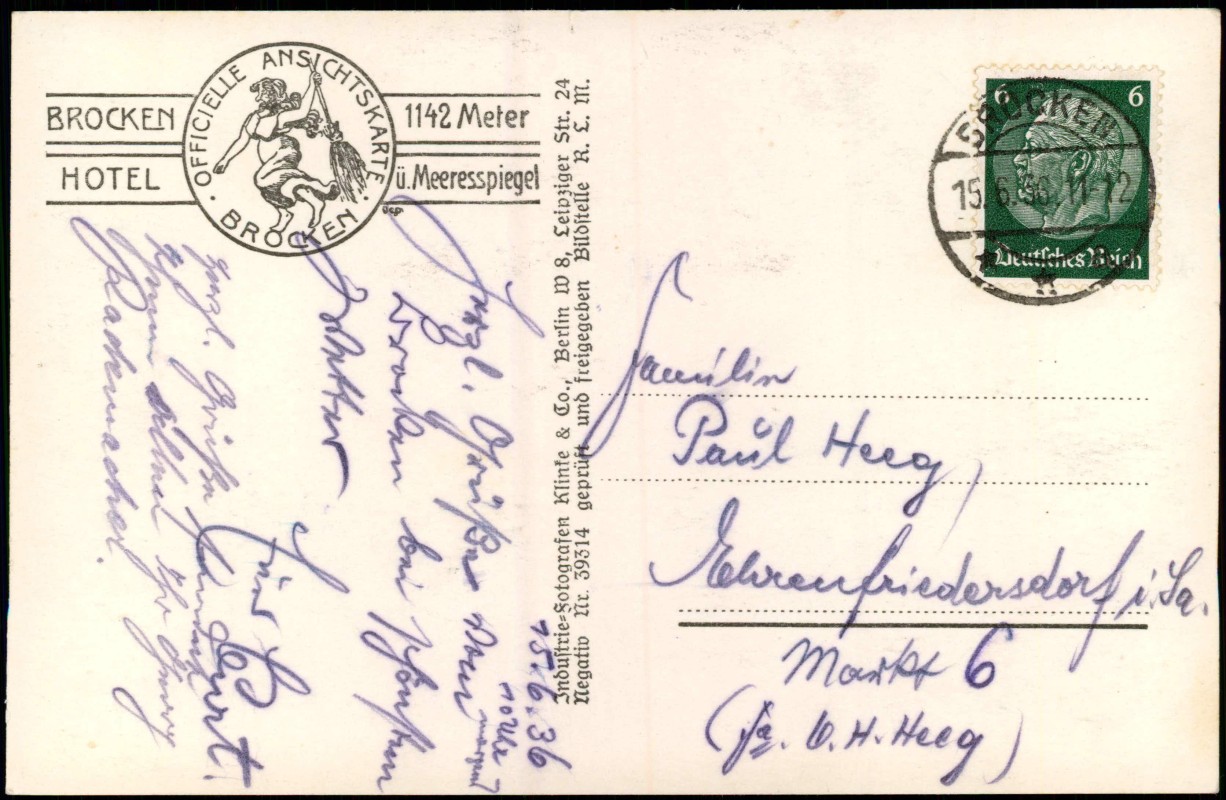 BROCKEN
HOTEL
OFFICIELLE ANSICHTSKARTE
· BROCKEN ·
1142 Meter
ü. Meeresspiegel
Industrie=Fotografen Klinke & Co., Berlin W 8, Leipziger Str. 24
Negativ Nr. 39314 geprüft und freigegeben Bildstelle R. L. M.
6
6
Deutsches Reich
BROCKEN
15.6.36.11-12
15.6.36
10 Uhr
Herzl. Grüße vom
Brocken bei schönstem
Wetter
Euer
Kurt.
Herzl. Grüße
Rademacher.
Familie
Paul Heeg
Ehrenfriedersdorf i. Sa.
Markt 6
(Fa. O. H. Heeg)